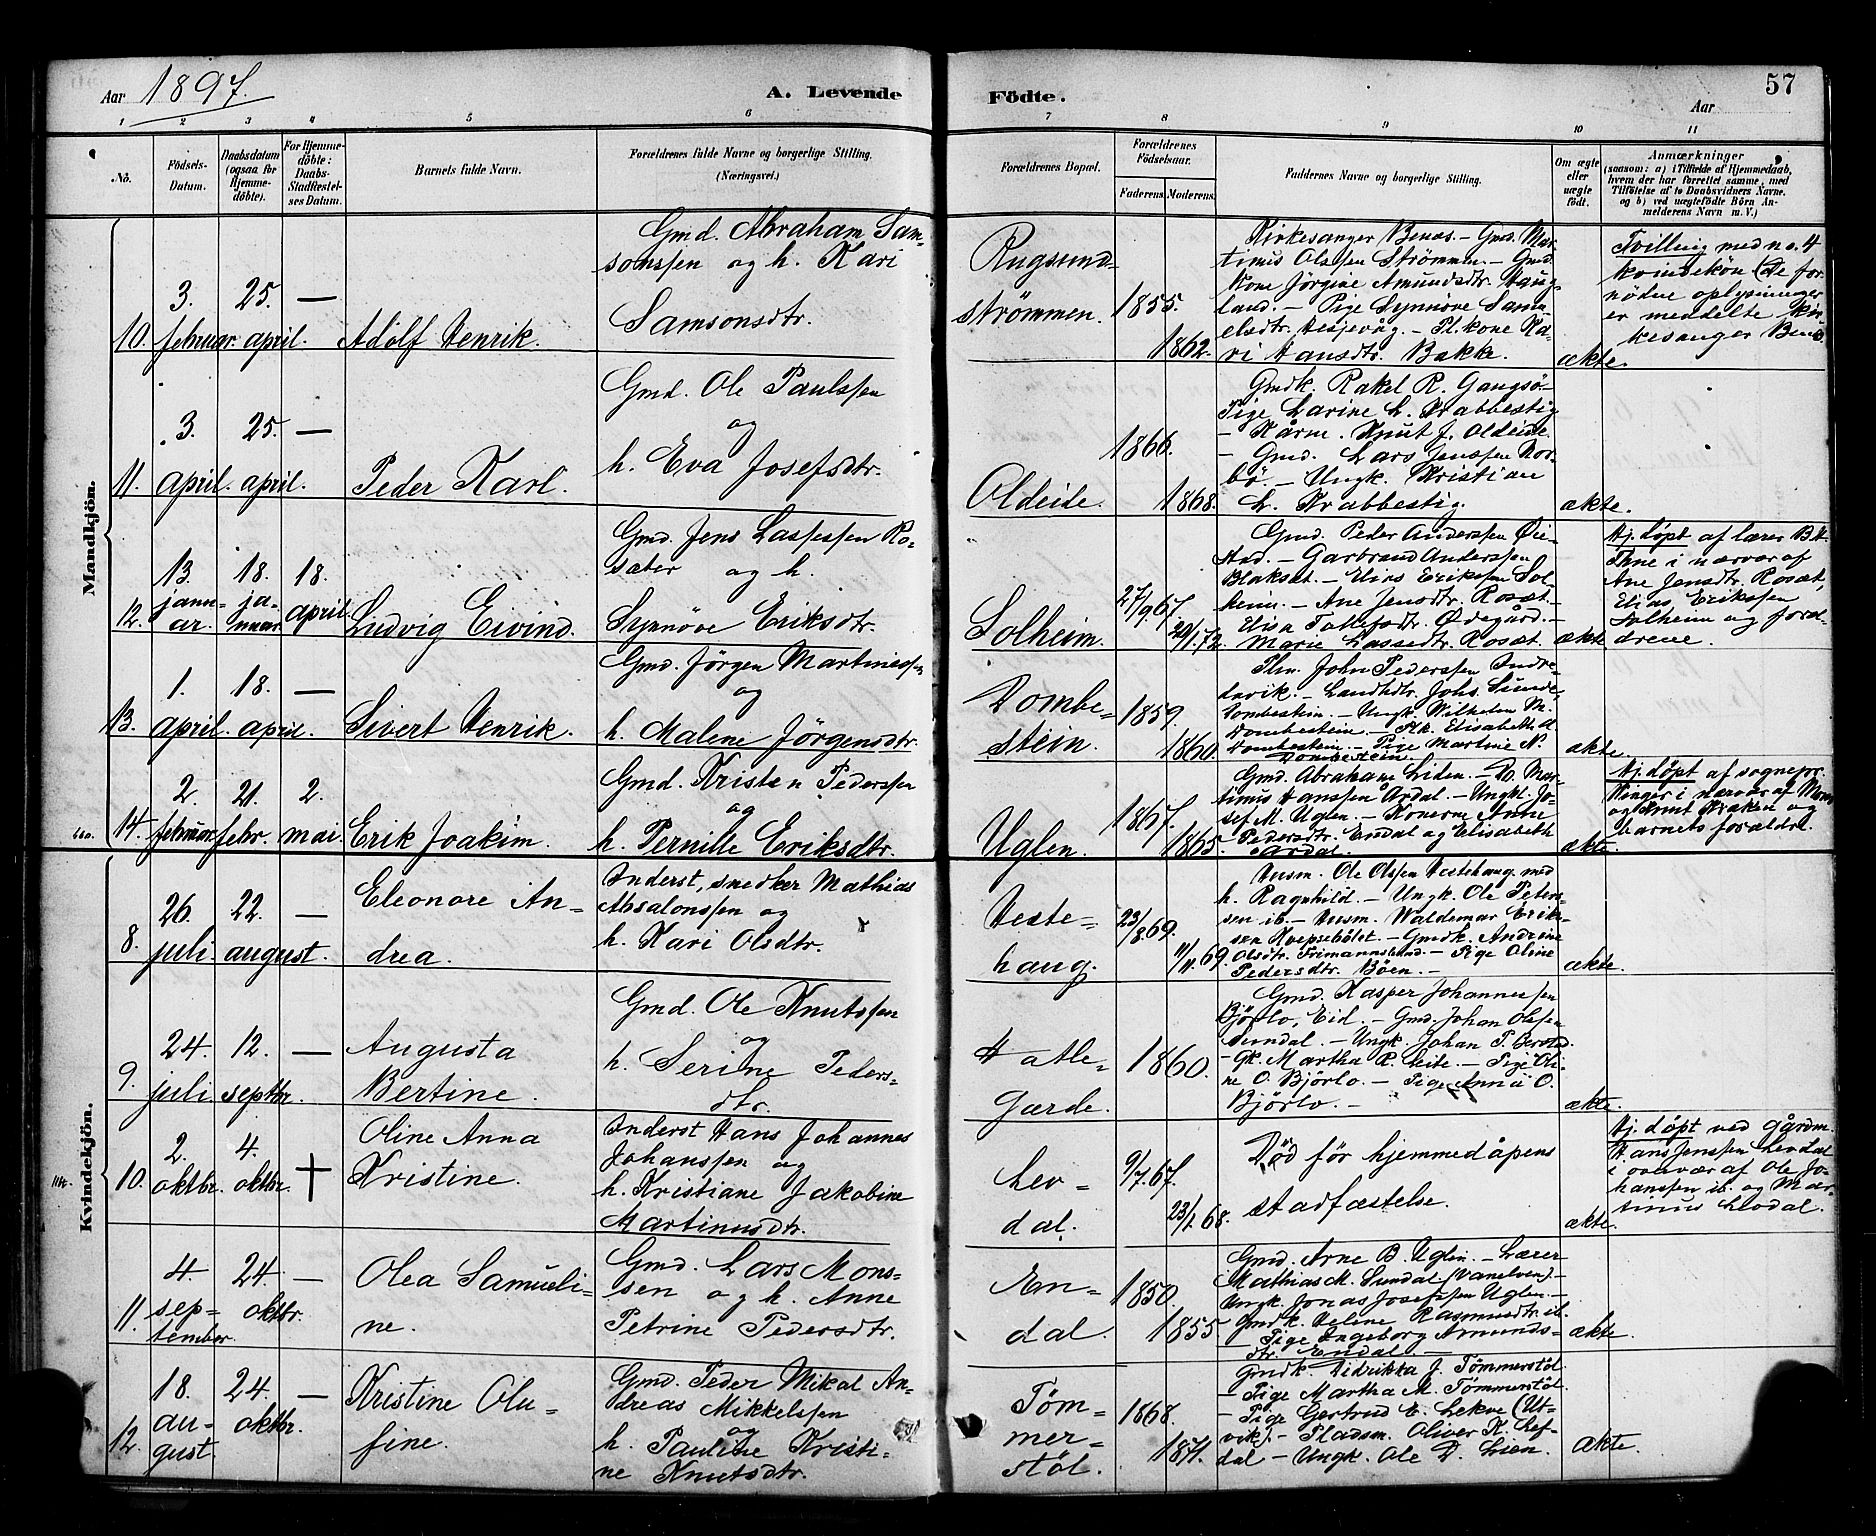 Aar 1897. A. Levende Födte. Aar 57
1 2 3 4 5 6 7 8 9 10 11
No.
Födsels-
Datum.
Daabsdatum
(ogsaa for
Hjemme-
döbte).
For Hjemme-
döbte:
Daabs-
Stadfæstel-
ses Datum.
Barnets fulde Navn.
Forældrenes fulde Navne og borgerlige Stilling.
(Næringsvei.)
Forældrenes Bopæl.
Forældrenes
Födselsaar.
Faderens. Moderens.
Faddernes Navne og borgerlige Stilling.
Om ægte
eller
uægte
födt.
Anmærkninger
(saasom: a) i Tilfælde af Hjemmedaab,
hvem der har forrettet samme, med
Tilföielse af to Daabsvidners Navne,
og b) ved uægtefödte Börn An-
melderens Navn m. V.)
Mandkjön.
10.
3.
februar.
25.
april.
—
Adolf Henrik.
Gmd. Abraham Sam-
sonssen og h. Kari
Samsonsdtr.
Rugsund-
strømmen.
1855.
1862.
Kirkesanger Benæs. — Gmd. Mar-
tinus Olssen Strømmen. — Gmd.
Kone Jörgine Amundsdtr. Haug-
land. — Pige Synnöve Samu-
elsdtr. Hesjevåg. — Pl.kone Ka-
ri Hansdtr. Bakke.
ækte.
Tvilling med no. 4
kvindekön (De for-
nödne oplysninger
er meddelte kir-
kesanger Benæs.
11.
3.
april.
25.
april.
—
Peder Karl.
Gmd. Ole Paulssen
og
h. Eva Josefsdtr.
Oldeide.
1866.
1868.
Gmdk. Rakel R. Gangsö. —
Pige Larine L. Krabbestig
— Kårm. Knut J. Oldeide.
— Gmd. Lars Jenssen Nor-
bö. — Ungk. Kristian
L. Krabbestig.
ækte.
12.
13.
janu-
ar.
18.
ja-
nuar.
18.
april.
Ludvig Eivind.
Gmd. Jens Lassessen Ro-
sæter og h.
Synnöve Eriksdtr.
Solheim.
27/9.67.
29/1.72.
Gmd. Peder Anderssen Öie-
stad. — Garbrand Anderssen
Blakset. — Elias Erikssen Sol-
heim. — Ane Jensdtr. Rosæt. —
Elisa Ødegård. —
Marie Lassedtr. Rosæt.
ækte
Hj. döpt af lærer B.H.
Thue i nærvær af
Ane Jensdtr. Rosæt,
Elias Erikssen
Solheim og foræl-
drene.
13.
1.
april.
18.
april.
—
Sivert Henrik.
Gmd. Jørgen Martinussen
og
h. Malene Jørgensdtr.
Dombe-
stein.
1859.
1860.
John Pederssen Indre-
havik. — Landhdlr. Johs. Sunde,
Dombestein. — Ungk. Wilhelm M.
Dombestein. — Elisabeth A.
Dombestein. — Pige Martine N.
Dombestein.
ækte.
14.
2.
februar.
21.
febr.
2.
mai.
Erik Joakim.
Gmd. Kristen Pederssen
og
h. Pernille Eriksdtr.
Uglen.
1867.
1865.
Gmd. Abraham Liden. — Mar-
tinus Hanssen Årdal. — Ungk. Jo-
sef M. Uglen. — Konerne Anne
Pedersdtr. Endal og Elisabeth
Årdal.
ækte.
Hj. döpt af sognepr.
Kinger i nærvær af Mons
og Knut Kråken og
barnets forældre.
Kvindekjön.
8.
26.
juli.
22.
august.
—
Eleonore An-
drea.
Inderst, snedker Mathias
Absalonssen og
h. Kari Olsdtr.
Heste-
haug.
23/8.69.
11/11.69.
Husm. Ole Olssen Hestehaug med
h. Ragnhild. — Ungk. Ole Peter-
sen ib. — Husm. Waldemar Erik-
sen Kvepsebölet. — Gmdk. Andrine
Olsdtr. Frimannslund. — Pige Oline
Pedersdtr. Böen. —
ækte.
9.
24.
juli.
12.
septbr.
—
Augusta
Bertine.
Gmd. Ole Knutssen
og
h. Serine Peders-
dtr.
Hatle-
Gærde.
1860.
Gmd. Kasper Johannessen
Bjørlo, Eid. — Gmd. Johan Olssen
— Ungk. Johan P.
— Gk. Martha R. Leite. — Pige Oli-
ne O. Bjørlo. — Pige Anna O.
Bjørlo. —
ækte.
10.
2.
oktbr.
4.
oktbr.
†
Oline Anna
Kristine.
Inderst Hans Johannes
Johanssen og
h. Kristiane Jakobine
Martinusdtr.
Lev-
dal.
9/7.67.
23/1.68.
Död för hjemmedåpens
stadfæstelse.
ækte.
Hj. döpt ved gårdm.
Hans Jenssen Levdal
i overvær af Ole Jo-
hanssen ib. og Mar-
tinus Levdal.
11.
4.
sep-
tember.
24.
oktbr.
—
Olea Samueli-
ne.
Gmd. Lars Mons-
sen og h. Anne
Petrine Pedersdtr.
En-
dal.
1850.
1855.
Gmd. Arne B. Uglen. — Lærer
Mathias M. Sundal (Vanelven). —
Ungk. Jonas Josefssen Uglen. —
Gmdk. Heline Rasmusdtr. ib.
— Pige Ingeborg Amunds-
dtr. Endal —
ækte.
12.
18.
au-
gust.
24.
oktbr.
—
Kristine Olu-
fine.
Gmd. Peder Mikal An-
dreas Mikkelssen
og
h. Pauline Kristi-
ne Knutsdtr.
Töm-
mer-
stöl.
1868.
1871.
Gmdk. Didrikka J. Tömmerstöl.
— Pige Martha M. Tömmerstöl.
— Pige Gertrud E. Lekve (Ut-
vik). — Pladsm. Oliver K. Lef-
dal — Ungk. Ole D. Lien.
ækte.